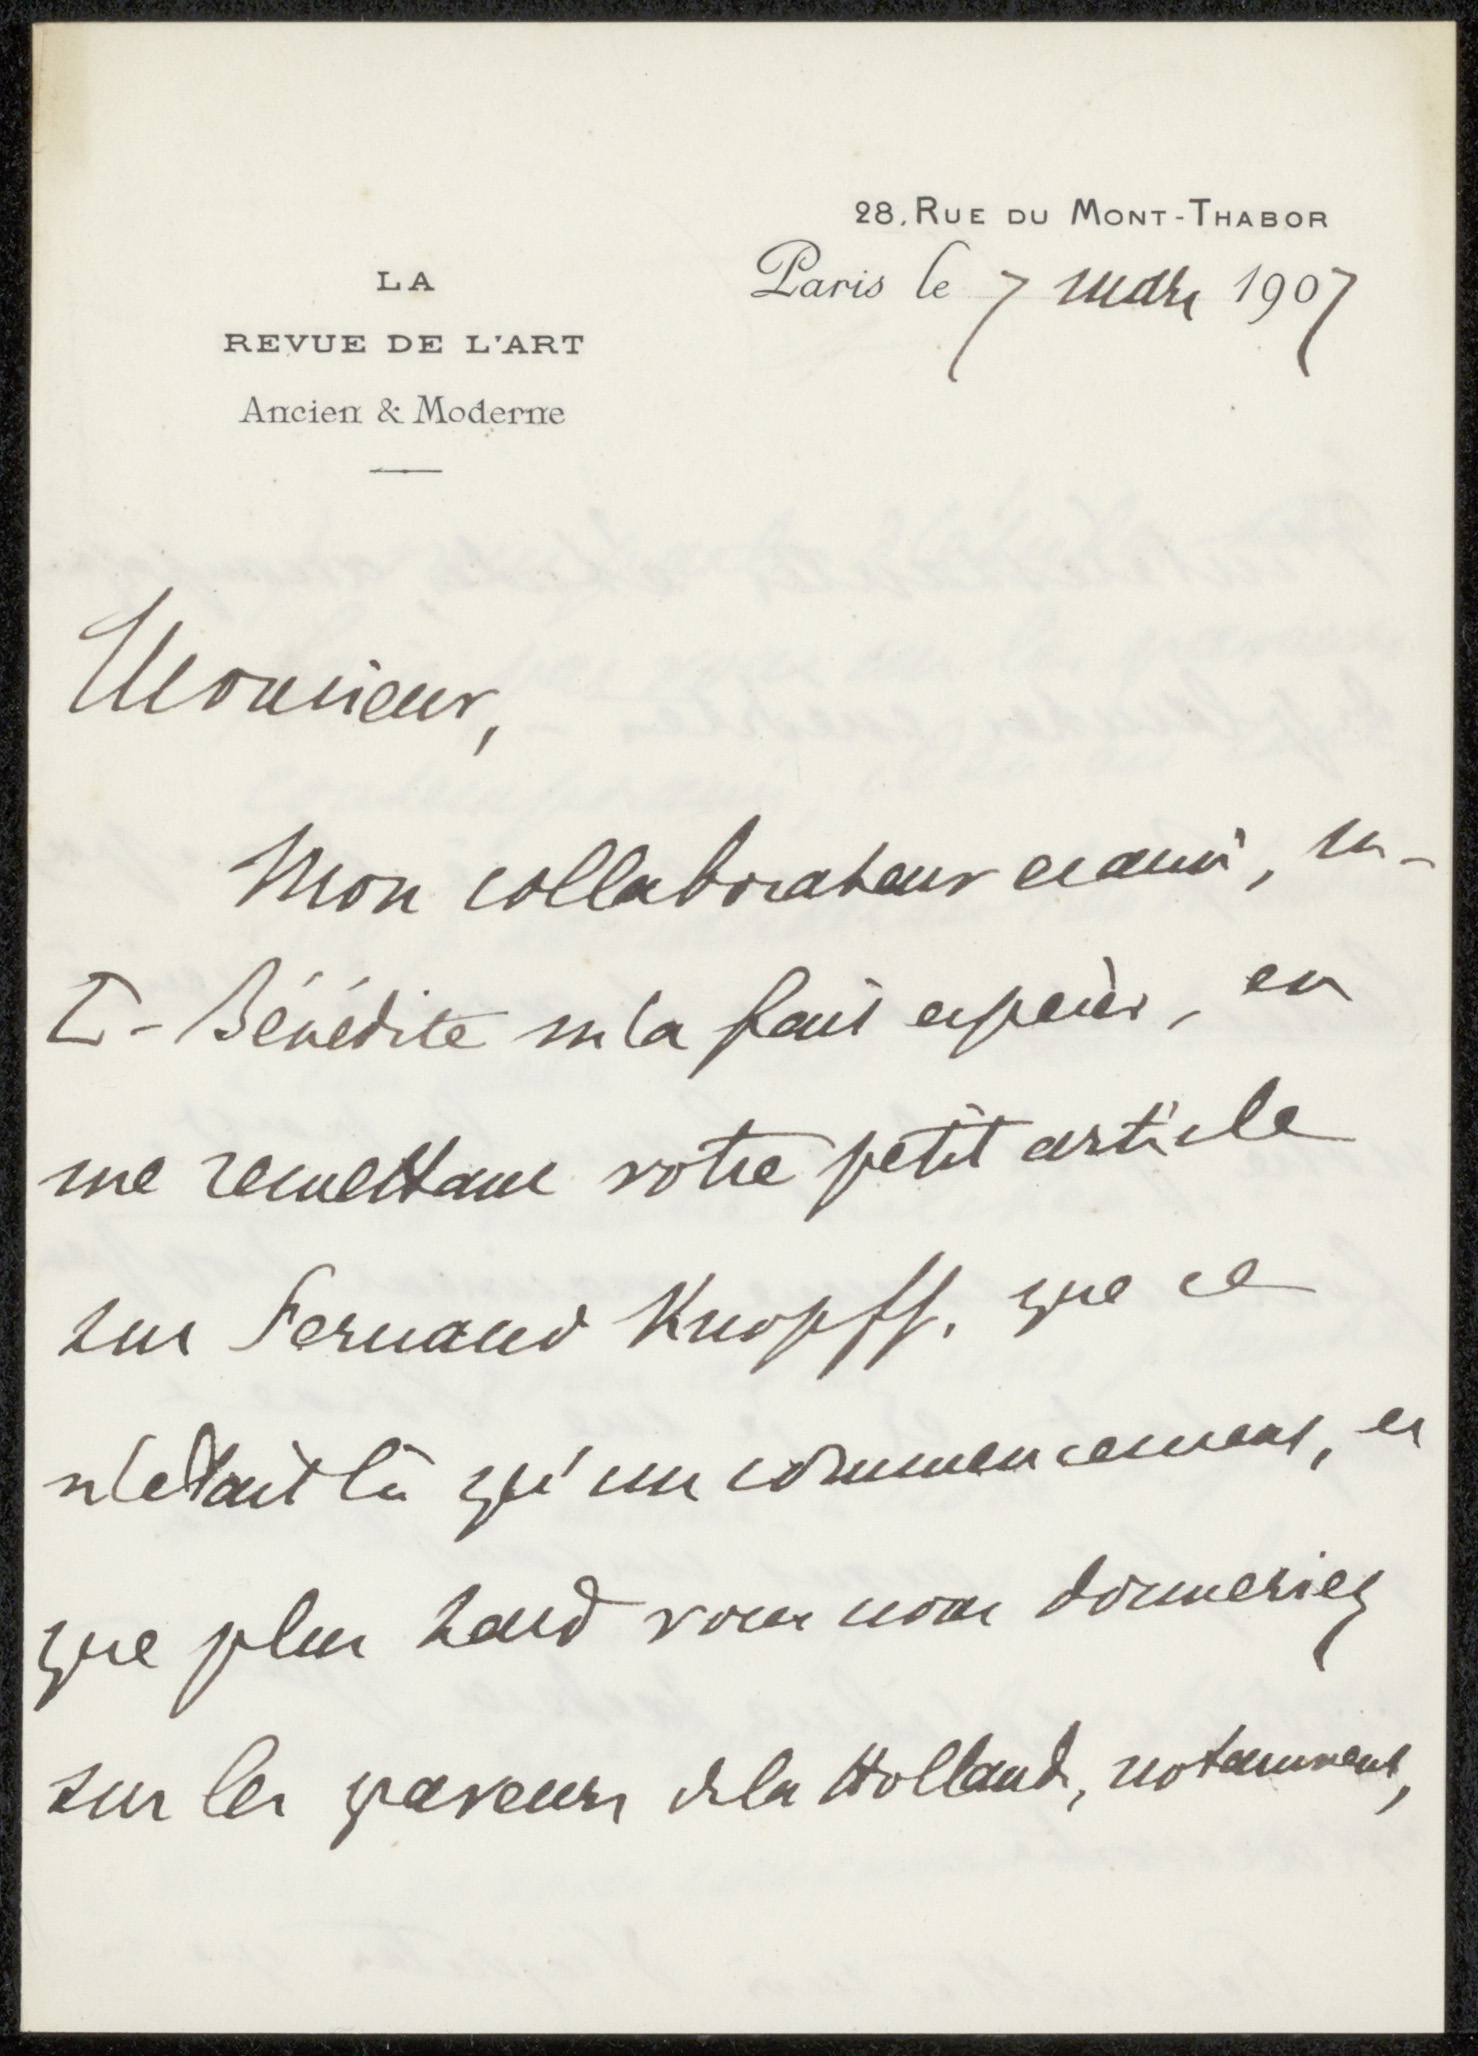 28, RUE DU MONT-THABOR
Paris le 7 mars 1907
LA
REVUE DE L'ART
Ancien & Moderne
Monsieur,
Mon collaborateur et ami, M.
L. Bénédite m'a fait espérer, en
me remettant votre petit article
sur Fernand Knopff, que ce
n'était là qu'un commencement, et
que plus tard vous nous donneriez
sur les graveurs de la Hollande, notamment,